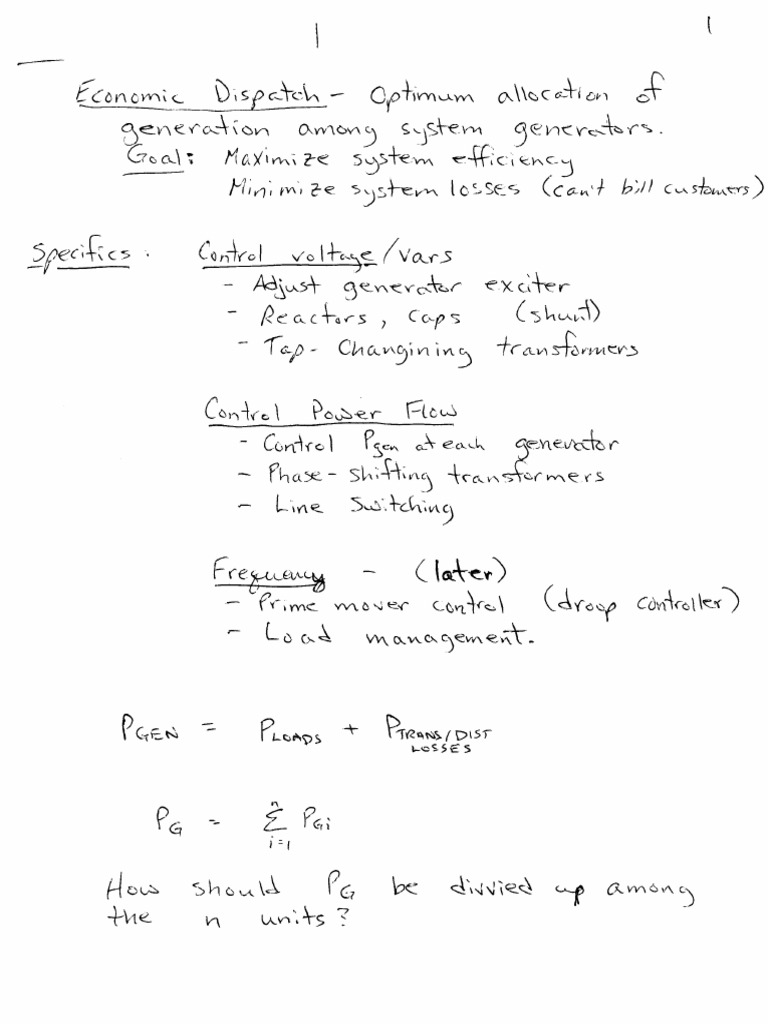 1 1
Economic Dispatch - Optimum allocation of
generation among system generators.
Goal: Maximize system efficiency
Minimize system losses (can't bill customers)
Specifics. Control voltage/vars
- Adjust generator exciter
- Reactors, caps (shunt)
- Tap-Changining transformers
Control Power Flow
- Control Pgen at each generator
- Phase-shifting transformers
- Line Switching
Frequency - (later)
- Prime mover control (droop controller)
- Load management.
PGEN = PLOADS + PTRANS/DIST
LOSSES
n
PG = Σ PGi
i=1
How should PG be divvied up among
the n units?